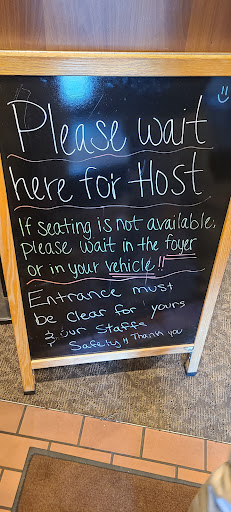 Please wait
here for Host
If seating is not available,
please wait in the foyer
or in your vehicle!!
Entrance must
be clear for yours
& our Staffs
Safety!! Thank you